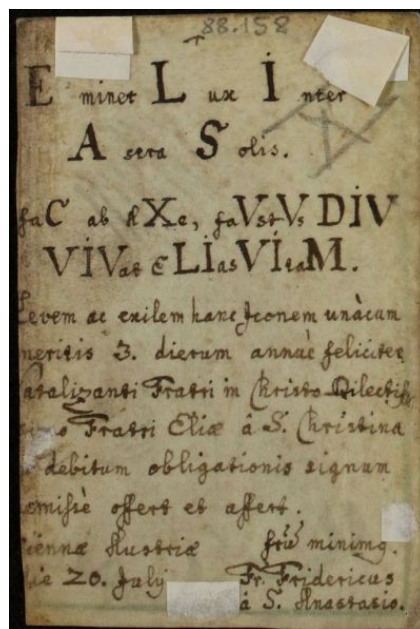 88.158
E minet L ux I nter
A stra S olis.
faC ab AXe, faVstVs DIV
VIVat ELIas VItaM.
Levem ac exilem hanc Iconem unàcum
meritis 3. dierum annuè feliciter
Natalizanti Fratri in Christo Dilectiss
Fratri Eliæ â S. Christina
debitum obligationis signum
offert et affert.
Viennæ Austriæ minimg.
die 20. July Fr. Fridericus
â S. Anastasio.